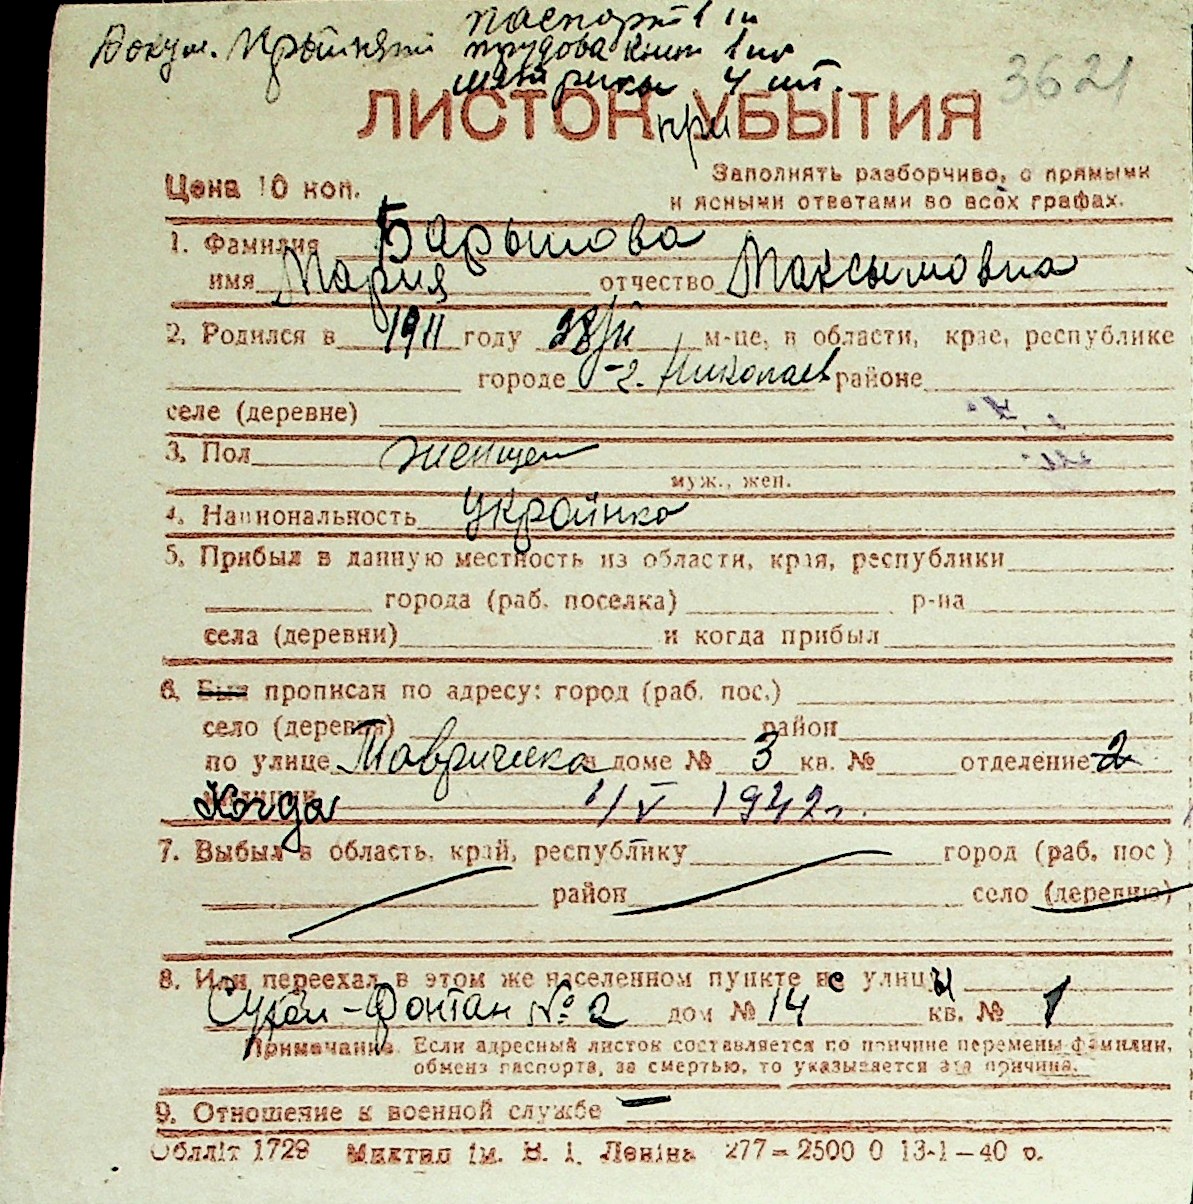 паспорт 1 ш
Докум. Прыйняті трудова книж 1 шт
метрики 4 шт.
3621
ЛИСТОК УБЫТИЯ
при
Цена 10 коп.
Заполнять разборчиво, с прямыми
и ясными ответами во всех графах.
1. Фамилия Барышова
имя Мария отчество Максымовна
2. Родился в 1911 году 28/ІІ м-це, в области, крае, республике
городе г. Николаев районе
селе (деревне)
3. Пол женщен
муж., жен.
4. Национальность украінка
5. Прибыл в данную местность из области, края, республики
города (раб. поселка) р-на
села (деревни) и когда прибыл
6. Был прописан по адресу: город (раб. пос.)
село (деревня) район
по улице Тавричиска в доме № 3 кв. № отделение 2
Когда 1/V 1942 г.
7. Выбыл в область, край, республику город (раб. пос)
район село (деревню)
8. Или переехал в этом же населенном пункте с улицы
Сухой-Фонтан № 2 дом № 14 кв. № 1
Примечание. Если адресный листок составляется по причине перемены фамилии,
обмена паспорта, за смертью, то указывается эта причина.
9. Отношение к военной службе —
Обллiт 1728 Миктип iм. В. I. Ленiна 277—2500 0 13-1—40 р.